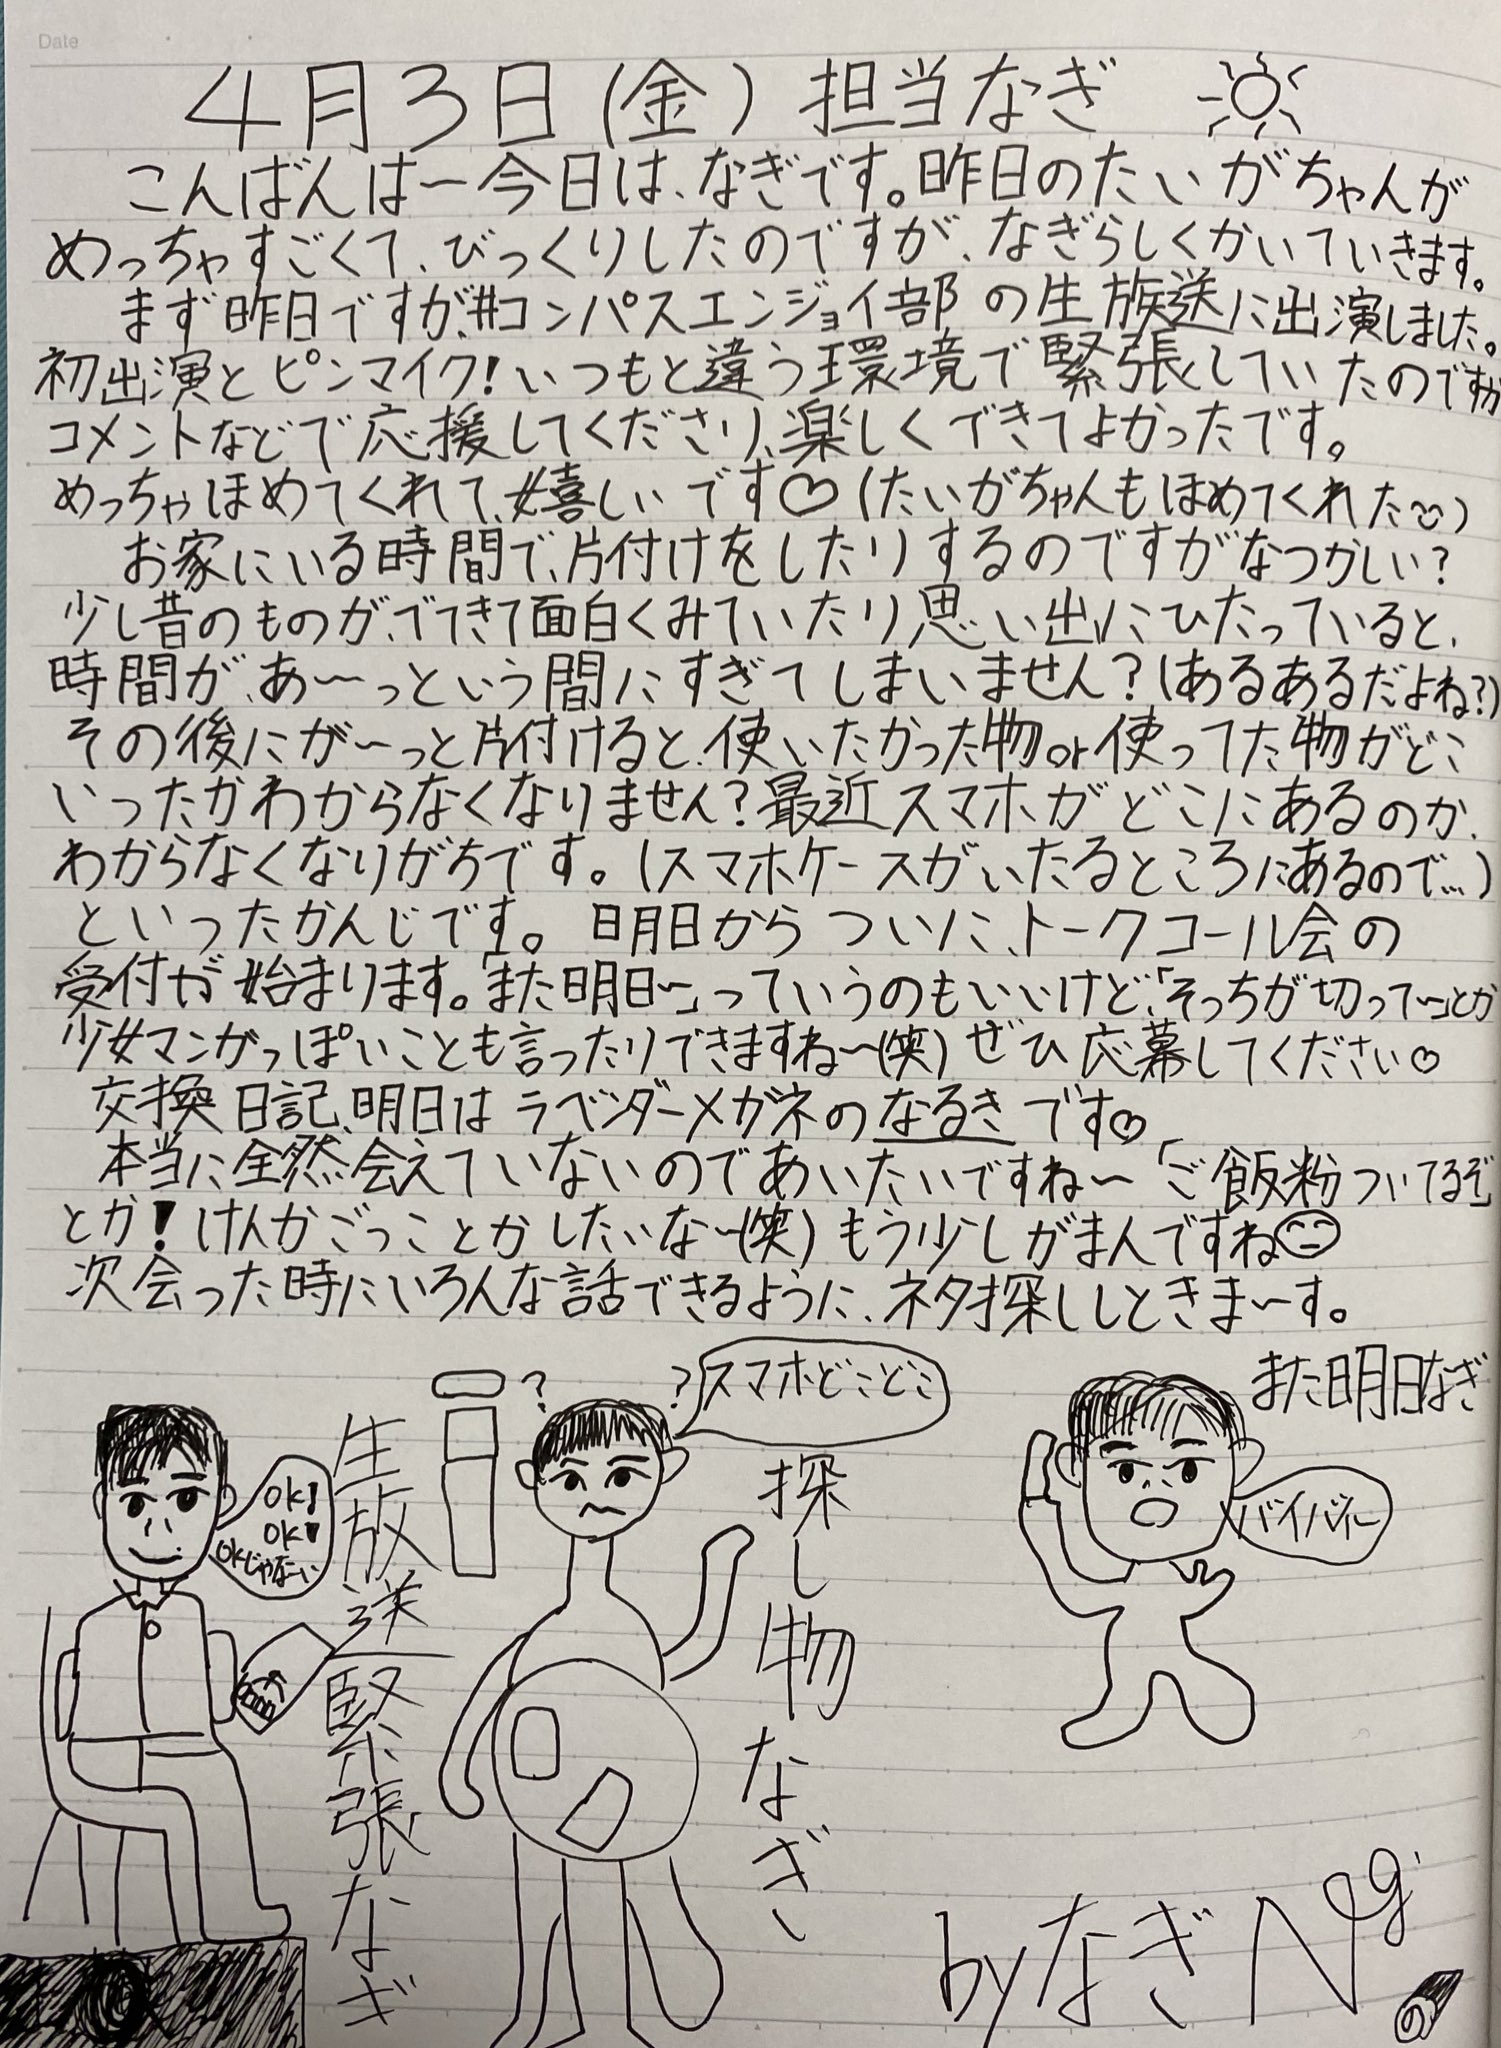 Date
4月3日(金)担当なぎ
こんばんは〜今日は、なぎです。昨日のたいがちゃんが
めっちゃすごくて、びっくりしたのですが、なぎらしくかいていきます。
まず昨日ですが、#コンパスエンジョイ部の生放送に出演しました。
初出演とピンマイク!いつもと違う環境で緊張していたのですが
コメントなどで応援してくださり、楽しくできてよかったです。
めっちゃほめてくれて、嬉しいです♡(たいがちゃんもほめてくれた)
お家にいる時間で、片付けをしたりするのですがなつかしい?
少し昔のものが、でてきて面白くみていたり思い出にひたっていると、
時間が、あ〜っという間にすぎてしまいません?(あるあるだよね?)
その後にが〜っと片付けると、使いたかった物or使ってた物がどこ
いったかわからなくなりません?最近スマホがどこにあるのか、
わからなくなりがちです。(スマホケースがいたるところにあるので…)
といったかんじです。明日からついに、トークコール会の
受付が始まります。「また明日〜」っていうのもいいけど、「そっちが切って〜」とか
少女マンガっぽいことも言ったりできますね〜(笑)ぜひ応募してください♡
交換日記、明日はラベンダーメガネのなるきです♡
本当に全然、会えていないのであいたいですね〜「ご飯粉ついてるぞ」
とか!けんかごっことかしたいな〜(笑)もう少しがまんですね
次会った時にいろんな話できるように、ネタ探ししときま〜す。
また明日なぎ
OK!
OK!
OKじゃな〜い
生放送緊張なぎ
?
?
スマホどこどこ
探し物なぎ
バイバイ〜
byなぎ Ng